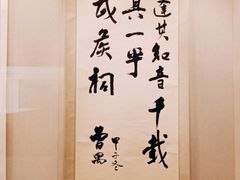 逢其知音千載
其一乎
武侯祠
甲子冬
曹禺